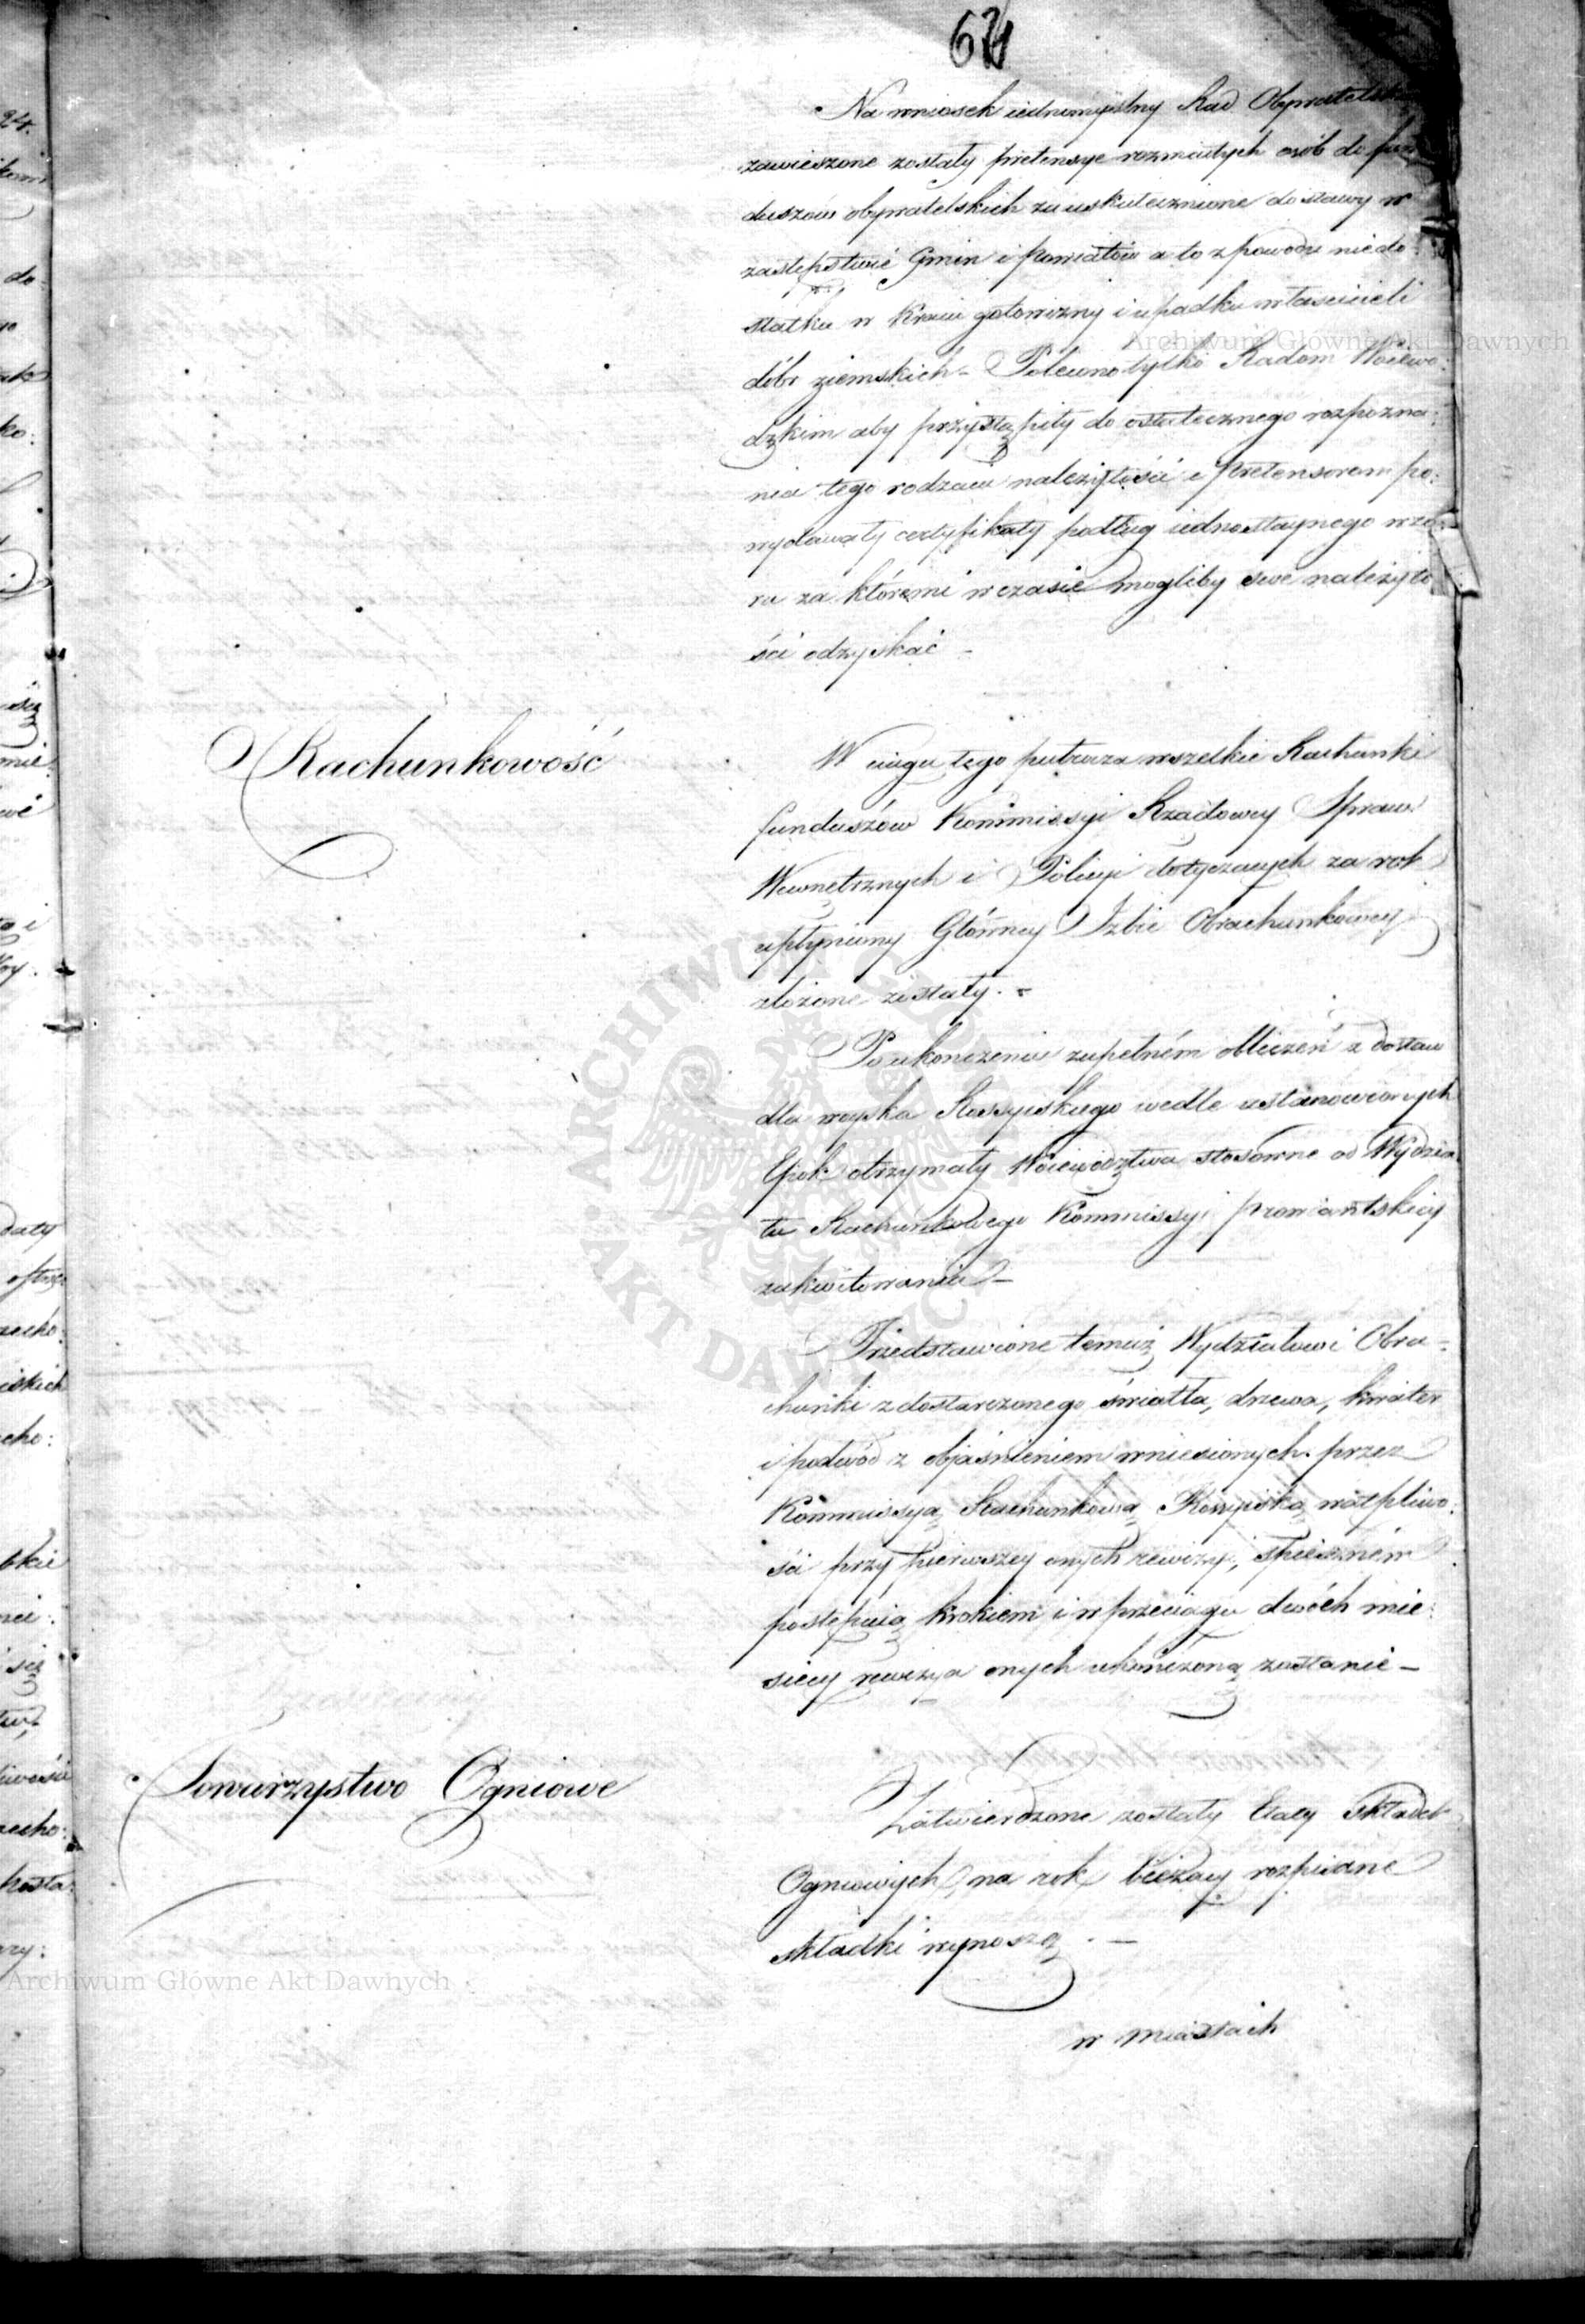 Na wniosek iednomyślny Rad Obywatelsk
zawieszone zostały pretensye rozmaitych osób do fun
duszów obywatelskich za uskutecznione dostawy w
zastępstwie Gmin i Powiatów a to z powodu niedo
statku w Kraiu gotowizny i upadku właścicieli
dóbr ziemskich – Polecono tylko Radom Woiewo:
dzkim aby przystąpiły do ostatecznego rozpozna:
nia tego rodzaiu należytości i Pretensorom po:
wydawały certyfikaty podług iednostaynego wzo
ru za któremi w czasie mogliby swe należyto
ści odzyskać –
Rachunkowość
W ciągu tego półrocza wszelkie Rachunki
funduszów Kommissyi Rządowey Spraw
Wewnętrznych i Policyi dotyczących za rok
upłyniony Główney Izbie Obrachunkowey
złożone zostały. –
Po ukonczeniu zupełném obliczeń z dostaw
dla woyska Rossyiskiego wedle ustanowionych
Epok otrzymały Woiewództwa stosowne od Wydzia
łu Rachunkowego Kommissyi prowiantskiey
zakwitowania –
Przedstawione temuż Wydziałowi Obra –
chunki z dostarczonego światła, drzewa, kwater
i podwód z objaśnieniem wniesionych przez
Kommissyą Rachunkową Rossyiską wątpliwo:
ści przy pierwszey onych rewizyi, spieszném
postępuią krokiem i w przeciągu dwóch mie:
sięcy rewizya onych ukończoną zostanie –
Towarzystwo Ogniowe
Zatwierdzone zostały Etaty Składek
Ogniowych, na rok bieżący rozpisane
składki wynoszą . –
w miastach
624
Archiwum Główne Akt Dawnych
Archiwum Główne Akt Dawnych